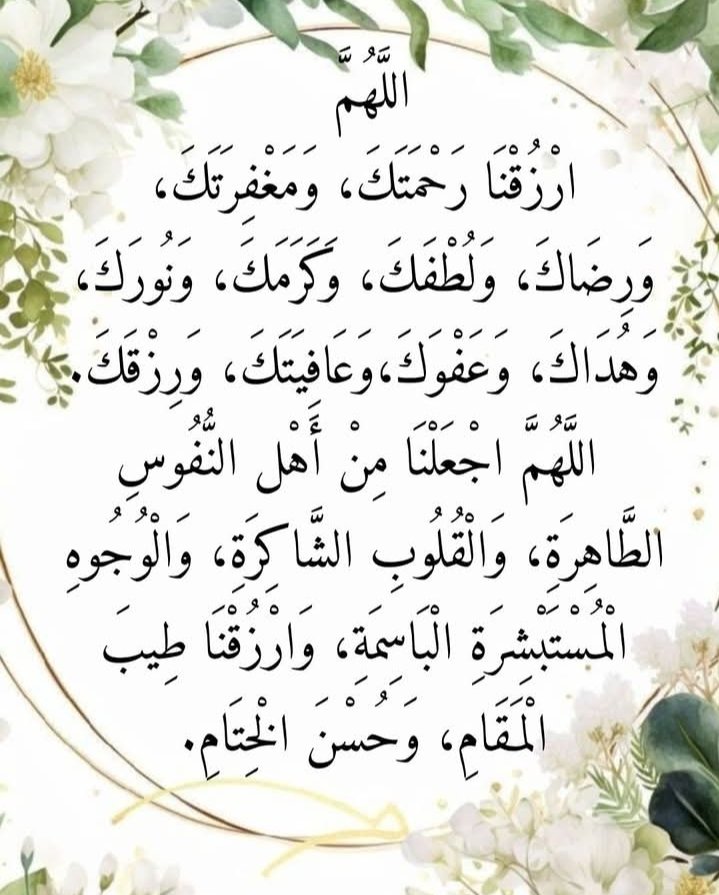 اللَّهُمَّ
ارْزُقْنَا رَحْمَتَكَ، وَمَغْفِرَتَكَ،
وَرِضَاكَ، وَلُطْفَكَ، وَكَرَمَكَ، وَنُورَكَ،
وَهُدَاكَ، وَعَفْوَكَ،وَعَافِيَتَكَ، وَرِزْقَكَ.
اللَّهُمَّ اجْعَلْنَا مِنْ أَهْلِ النُّفُوسِ
الطَّاهِرَةِ، وَالْقُلُوبِ الشَّاكِرَةِ، وَالْوُجُوهِ
الْمُسْتَبْشِرَةِ الْبَاسِمَةِ، وَارْزُقْنَا طِيبَ
الْمَقَامِ، وَحُسْنَ الْخِتَامِ.